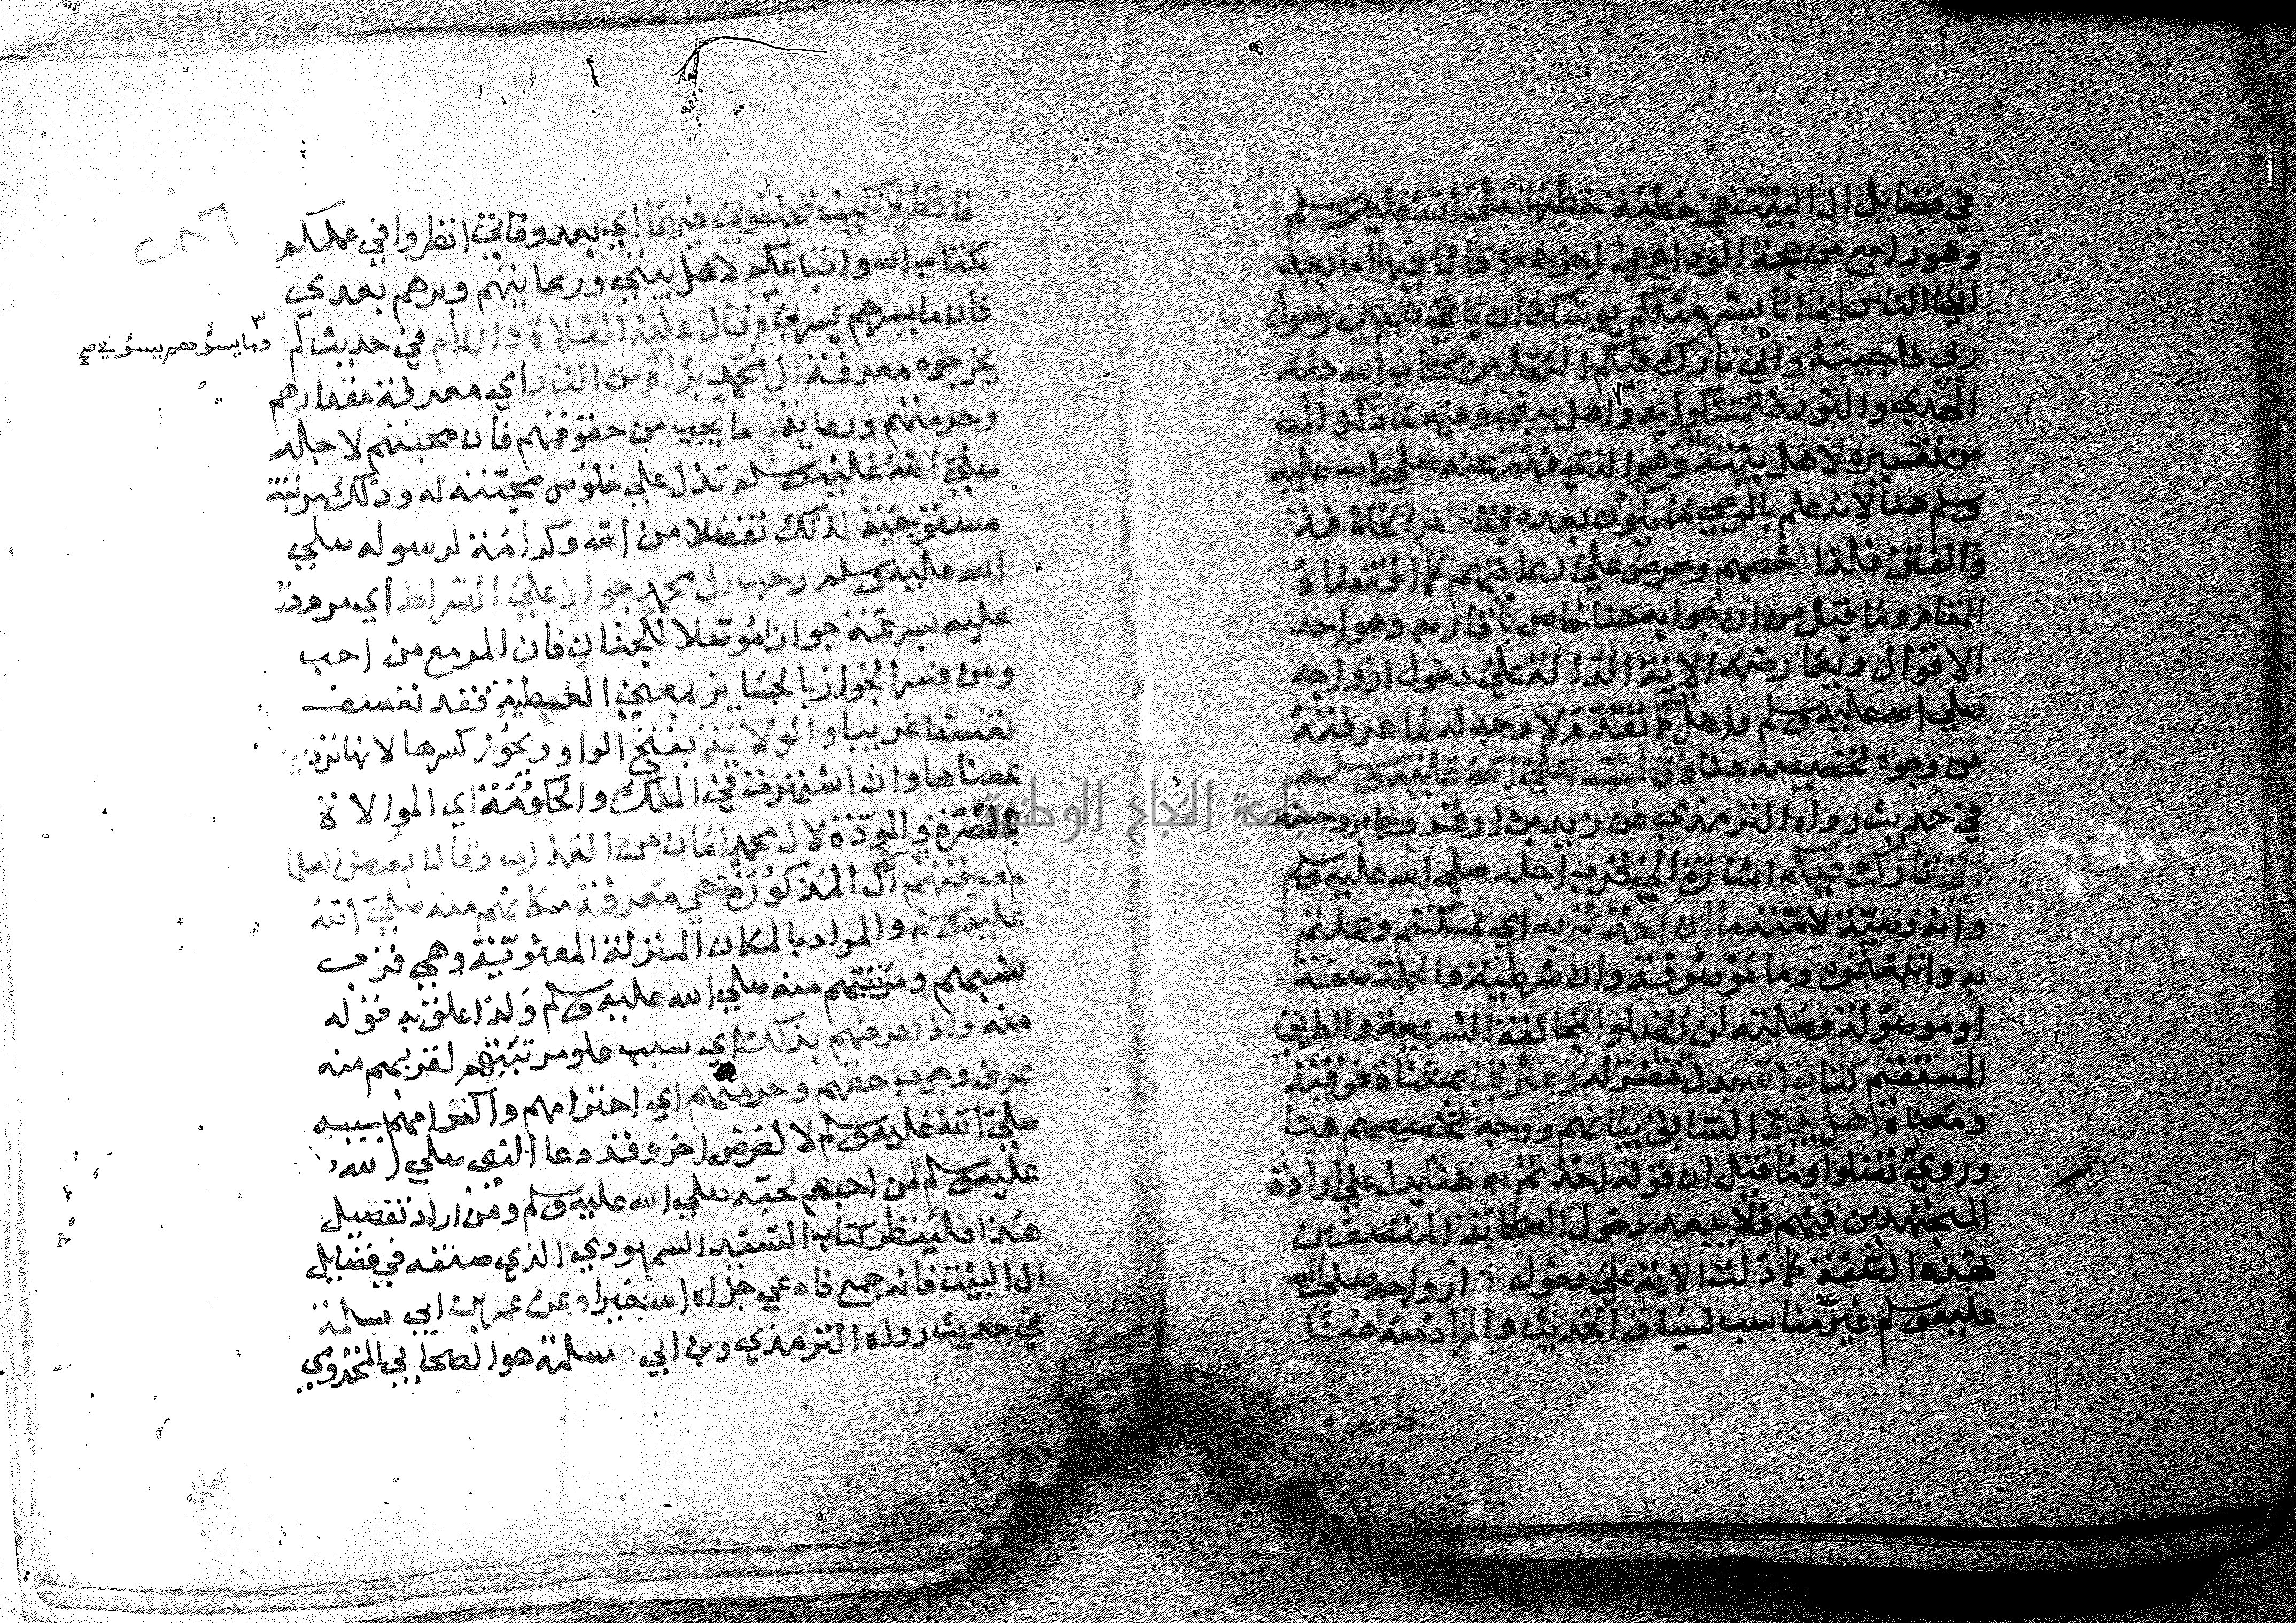 في فضايل ال البيت في خطبة خطبها صلي الله عليه وسلم
وهو راجع من حجة الوداع في اخر عمره قال فيها اما بعد
ايها الناس انما انا بشر مثلكم يوشك ان ياتيني رسول
ربي فاجيبه واني تارك فيكم الثقلين كتاب الله فيه
الهدي والنور فتمسكوا به واهل بيتي وفيه ما ذكره المص
من تفسيره لاهل بيته وهو الذي فهم عنه صلي الله عليه
وسلم هنا لانه علم بالوحي ما يكون بعده في امر الخلافة
والفتن فلذا خصهم وحرض علي رعايتهم كما اقتضاه
المقام وما قيل من ان جوابه هنا خاص باقاربه وهو احد
الاقوال ويعارضه الاية الدالة علي دخول ازواجه
صلي الله عليه وسلم واهل كما تقدم لا وجه له لما عرفته
من وجوه تخصيصه هنا وقالـــ صلي الله عليه وسلم
في حديث رواه الترمذي عن زيد بن ارقم وجابر وحسنه
اني تارك فيكم اشارة الي قرب اجله صلي الله عليه وسلم
وانه وصية لامته ما ان اخذتم به اي تمسكتم وعملتم
به واتبعتموه وما موصوفة وان شرطية والجملة صفة
او موصولة وصلته لن تضلوا بمخالفة الشريعة والطريق
المستقيم كتاب الله بدل وعترتي بمثناة فوقية
ومعناه اهل بيتي السابق بيانهم ووجه تخصيصهم هنا
وروي تضلوا وما قيل ان قوله اخذتم به هنا يدل علي ارادة
المجتهدين فيهم فلا يبعد دخول الصحابة المتصفين
بهذه الصفة كما دلت الاية علي دخول ازواجه صلي الله
عليه وسلم غير مناسب لسياق الحديث والمراد منه هنا
فانظروا
فانظروا كيف تخلفوني فيهما اي بعد وفاتي انظروا في عملكم
بكتاب الله واتباعكم لاهل بيتي ورعايتهم وبرهم بعدي
فان ما يسرهم يسرني وقال عليه الصلاة والسلام في حديث لم
وما يسؤهم يسؤني صح
يخرجوه معرفة ال محمد براة من النار اي معرفة مقدارهم
وحرمتهم ورعاية ما يجب من حقوقهم فان محبتهم لاجله
صلي الله عليه وسلم تدل علي خلوص محبته له وذلك مرتبة
مستوجبة لذلك تفضلا من الله وكرامة لرسوله صلي
الله عليه وسلم وحب ال محمد جواز علي الصراط اي مروره
عليه بسرعة جوازا موصلا للجنان فان المرء مع من احب
ومن فسر الجواز بالجايز بمعني العطية فقد تعسف
تعسفا غريبا والولاية بفتح الواو ويجوز كسرها لانها ترد
بمعناها وان اشتهرت في الملك والحكومة اي الموالاة
بالنصرة والمودة لال محمد امان من العذاب وقال بعض العلما
معرفتهم ال المذكورة هي معرفة مكانهم منه صلي الله
عليه وسلم والمراد بالمكان المنزلة المعنوية وهي قرب
نسبهم ومرتبتهم منه صلي الله عليه وسلم ولذا علق به قوله
منه واذا عرفهم بذلك اي سبب علو مرتبتهم لقربهم منه
عرف وجوب حقهم وحرمتهم اي احترامهم واكرامهم بسببه
صلي الله عليه وسلم لا لغرض اخر وقد دعا النبي صلي الله
عليه وسلم لمن احبهم لحبه صلي الله عليه وسلم ومن اراد تفصيل
هذا فلينظر كتاب السيد السمهودي الذي صنفه في فضايل
ال البيت فانه جمع فاوعي جزاه الله خيرا وعن عمر بن ابي سلمة
في حديث رواه الترمذي وبن ابي سلمة هو الصحابي المخزومي
جامعة النجاح الوطنية